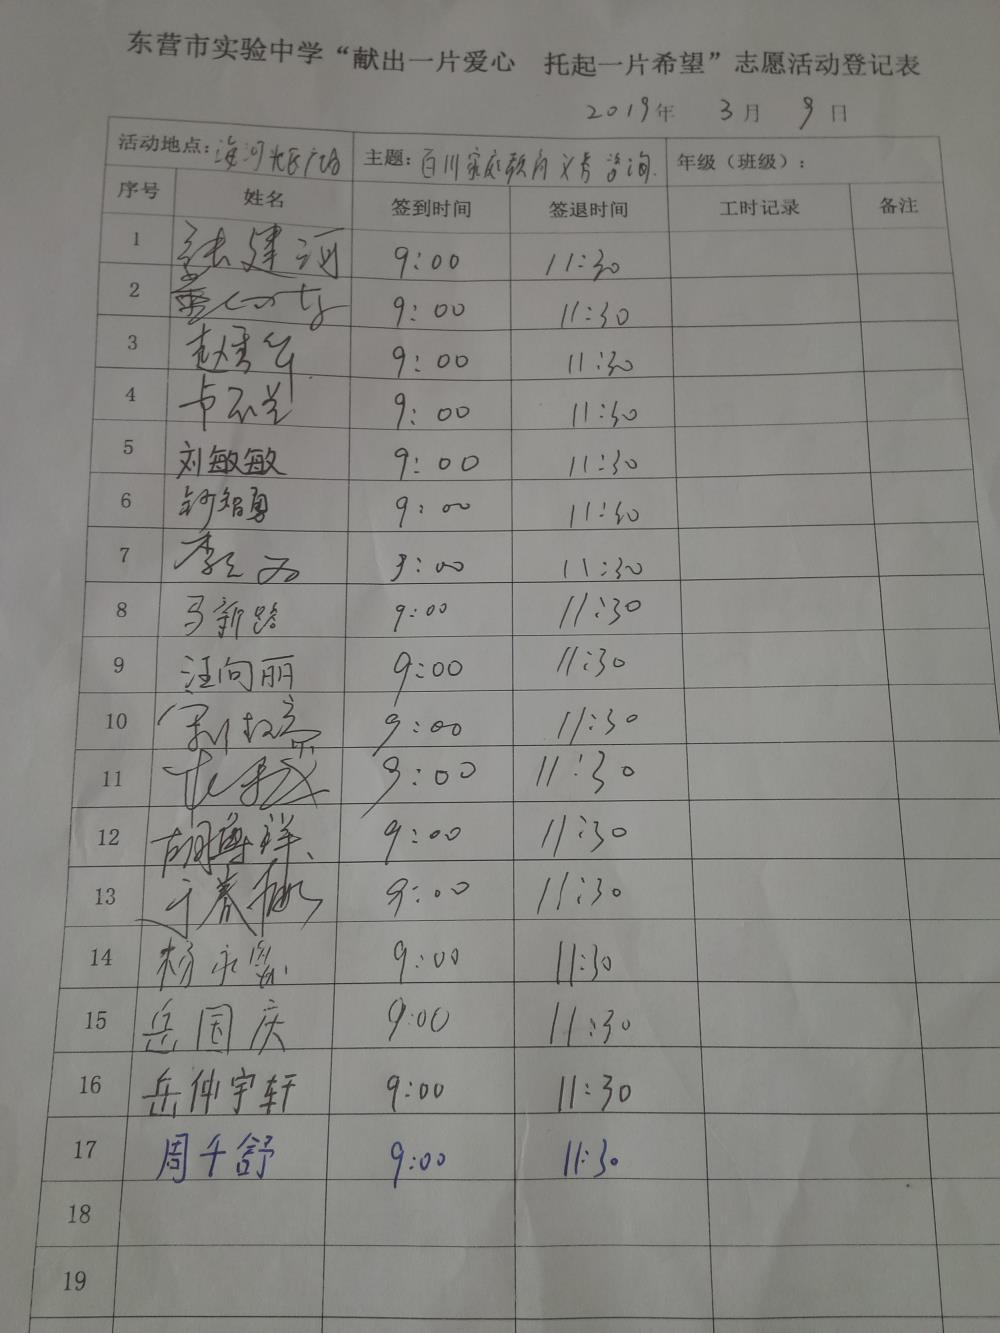 东营市实验中学“献出一片爱心 托起一片希望”志愿活动登记表
2019年 3月 9日
活动地点：海河 广场 主题：百川家庭教育义务咨询 年级（班级）：
序号 姓名 签到时间 签退时间 工时记录 备注
1 张建河 9:00 11:30
2 9:00 11:30
3 赵秀 9:00 11:30
4 9:00 11:30
5 刘敏敏 9:00 11:30
6 智勇 9:00 11:30
7 李 9:00 11:30
8 马新路 9:00 11:30
9 汪向丽 9:00 11:30
10 9:00 11:30
11 9:00 11:30
12 胡尊祥 9:00 11:30
13 春 9:00 11:30
14 杨永 9:00 11:30
15 岳国庆 9:00 11:30
16 岳仲宇轩 9:00 11:30
17 周千舒 9:00 11:30
18
19